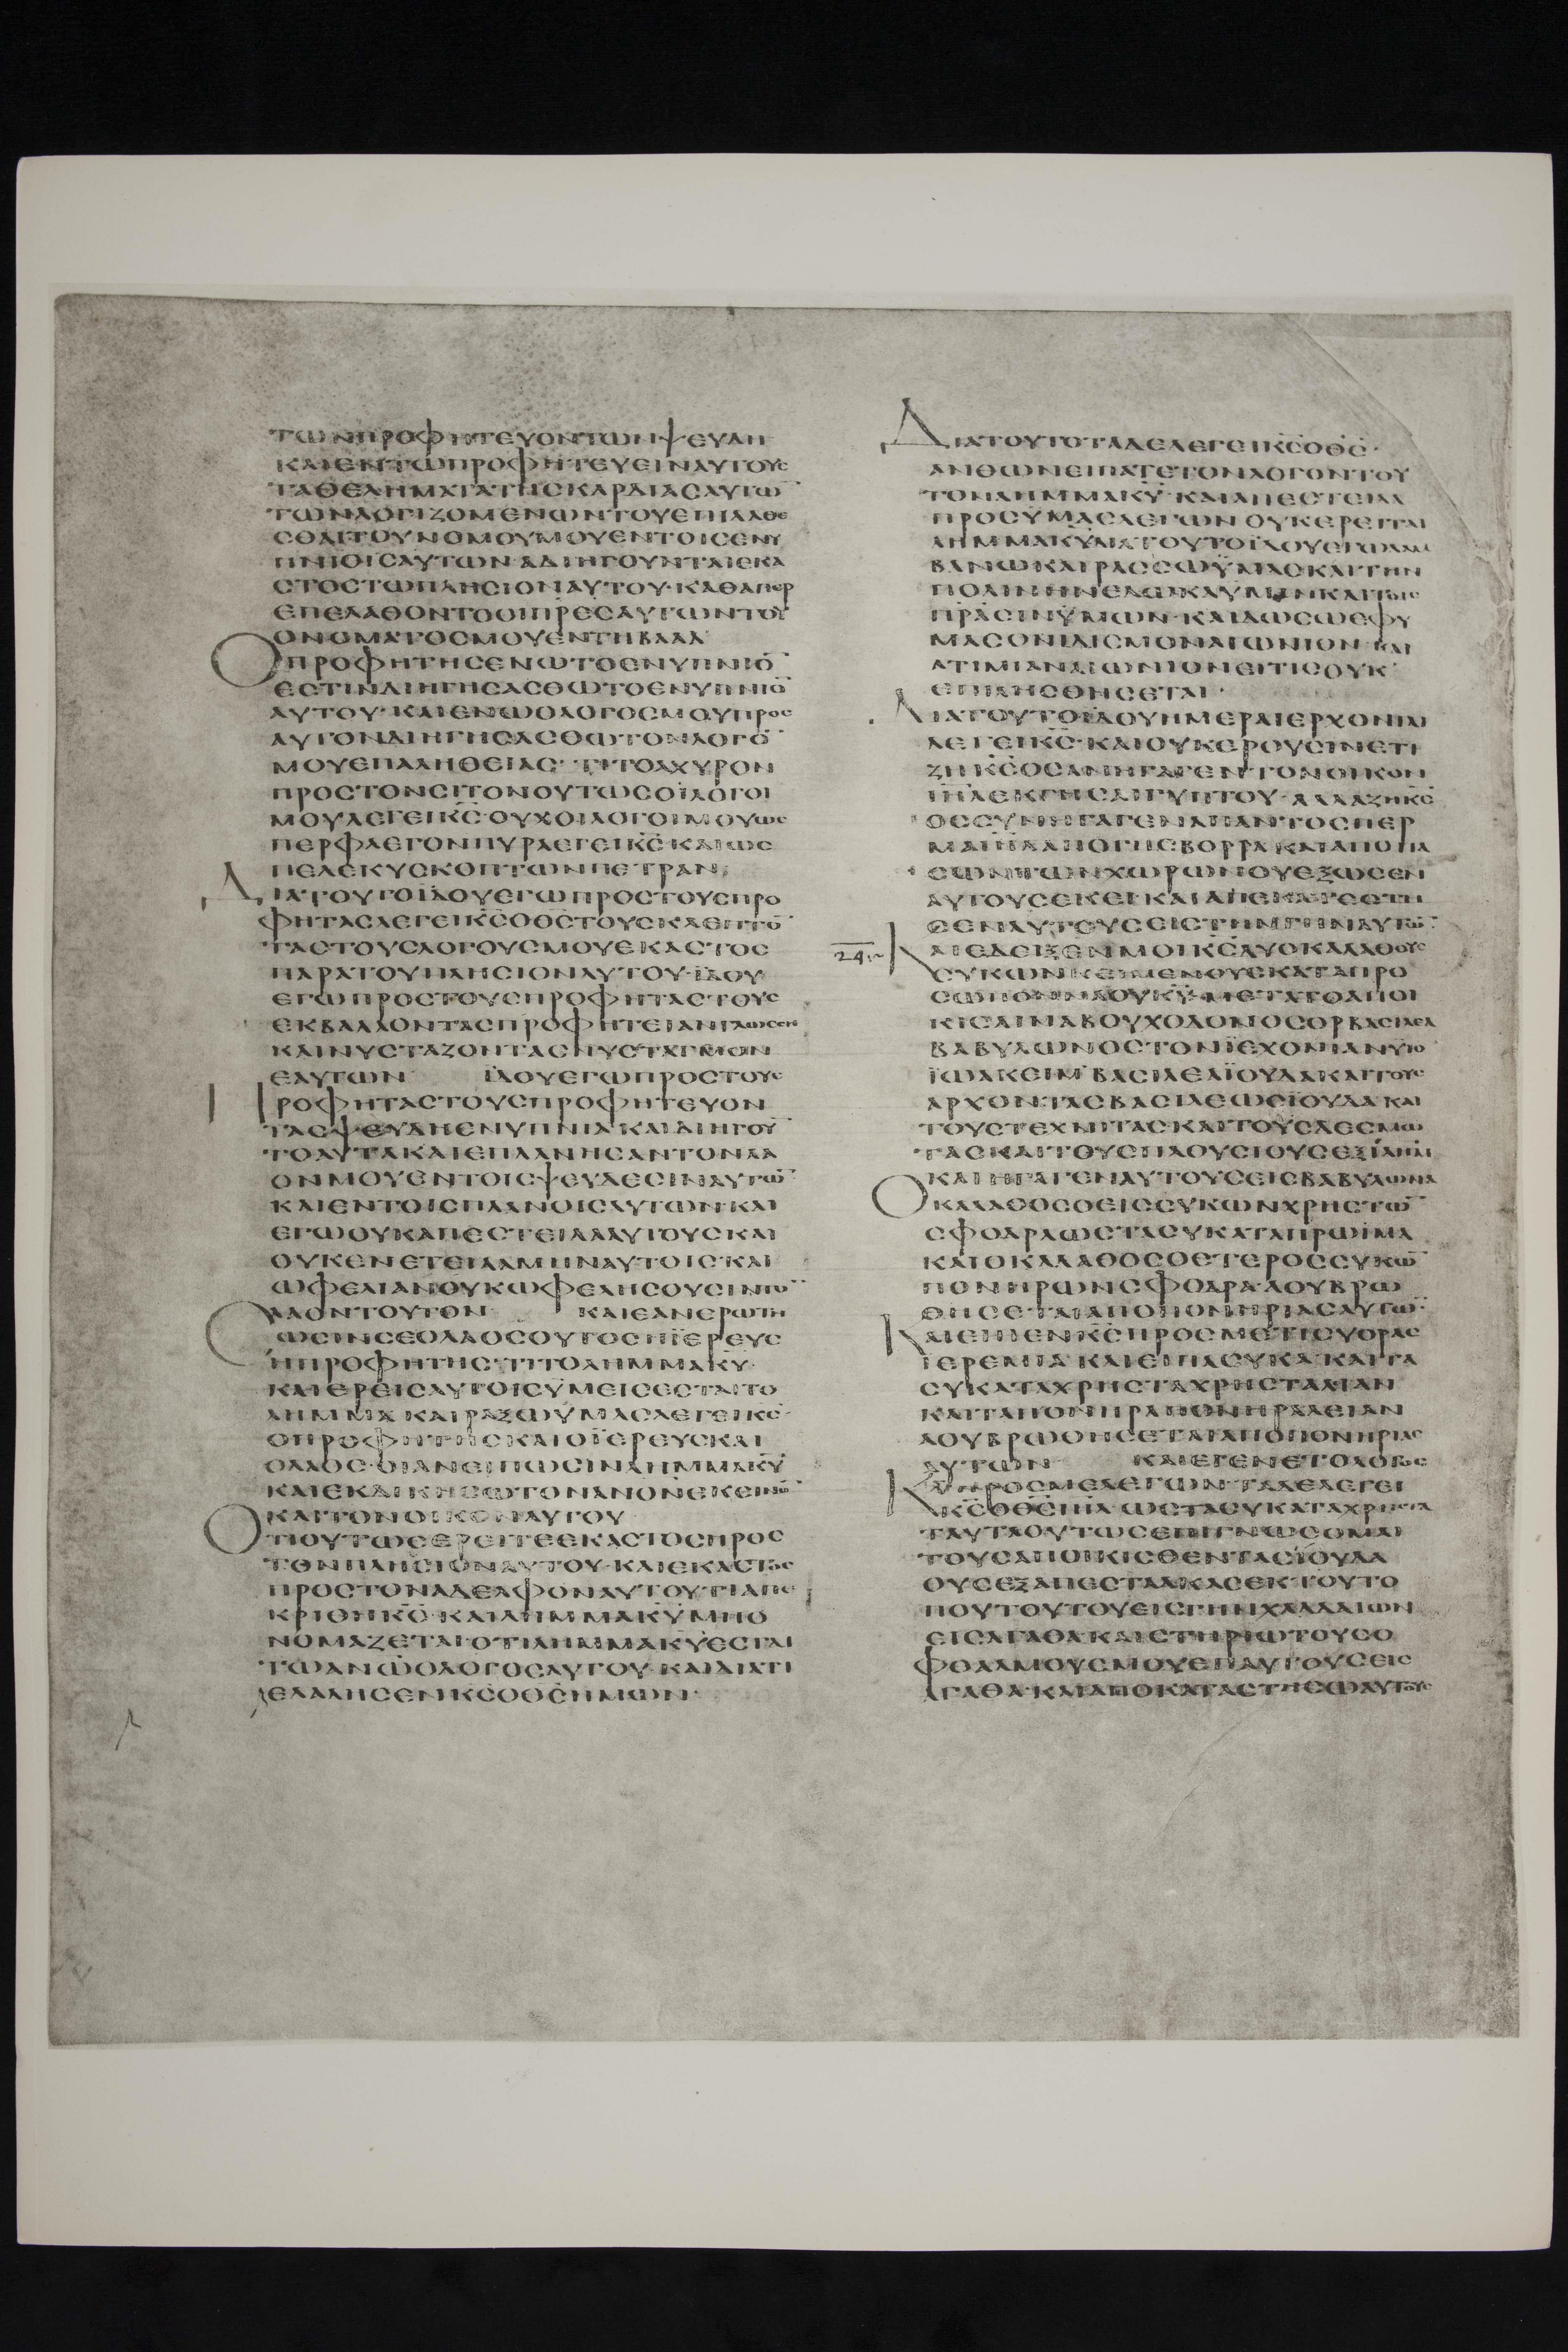 ΤΩΝΠΡΟΦΗΤΕΥΟΝΤΩΝΨΕΥΔΗ
ΚΑΙΕΝΤΩΠΡΟΦΗΤΕΥΕΙΝΑΥΤΟΥς
ΤΑΘΕΛΗΜΑΤΑΤΗΣΚΑΡΔΙΑΣΑΥΤΩ̅
ΤΩΝΛΟΓΙΖΟΜΕΝΩΝΤΟΥΕΠΙΛΑΘΕ
ΣΘΑΙΤΟΥΝΟΜΟΥΜΟΥΕΝΤΟΙΣΕΝΥ
ΠΝΙΟΙΣΑΥΤΩΝ·ΑΔΙΗΓΟΥΝΤΑΙΕΚΑ
ΣΤΟΣΤΩΠΛΗΣΙΟΝΑΥΤΟΥ·ΚΑΘΑΠΕΡ
ΕΠΕΛΑΘΟΝΤΟΟΙΠΡ̅ΕΣΑΥΤΩΝΤΟΥ
ΟΝΟΜΑΤΟΣΜΟΥΕΝΤΗΒΑΑΛ
ΟΠΡΟΦΗΤΗΣΕΝΩΤΟΕΝΥΠΝΙΟ̅
ΕΣΤΙΝΔΙΗΓΗΣΑΣΘΩΤΟΕΝΥΠΝΙΟ̅
ΑΥΤΟΥ·ΚΑΙΕΝΩΟΛΟΓΟΣΜΟΥΠΡΟΣ
ΑΥΤΟΝΔΙΗΓΗΣΑΣΘΩΤΟΝΛΟΓΟ̅
ΜΟΥΕΠΑΛΗΘΕΙΑΣ·ΤΙΤΟΑΧΥΡΟΝ
ΠΡΟΣΤΟΝΣΙΤΟΝΟΥΤΩΣΟΙΛΟΓΟΙ
ΜΟΥΛΕΓΕΙΚ̅Σ̅·ΟΥΧΟΙΛΟΓΟΙΜΟΥΩΣ
ΠΕΡΦΛΕΓΟΝΠΥΡΛΕΓΕΙΚ̅Σ̅·ΚΑΙΩΣ
ΠΕΛΕΚΥΣΚΟΠΤΩΝΠΕΤΡΑΝ·
ΔΙΑΤΟΥΤΟΪΔΟΥΕΓΩΠΡΟΣΤΟΥΣΠΡΟ
ΦΗΤΑΣΛΕΓΕΙΚ̅Σ̅ΟΘ̅Σ̅ΤΟΥΣΚΛΕΠΤΟ̅
ΤΑΣΤΟΥΣΛΟΓΟΥΣΜΟΥΕΚΑΣΤΟΣ
ΠΑΡΑΤΟΥΠΛΗΣΙΟΝΑΥΤΟΥ·ΪΔΟΥ
ΕΓΩΠΡΟΣΤΟΥΣΠΡΟΦΗΤΑΣΤΟΥΣ
ΕΚΒΑΛΛΟΝΤΑΣΠΡΟΦΗΤΕΙΑΝΓΛΩΣΣΗ
ΚΑΙΝΥΣΤΑΖΟΝΤΑΣΝΥΣΤΑΓΜΟΝ
ΕΑΥΤΩΝ ΪΔΟΥΕΓΩΠΡΟΣΤΟΥΣ
ΠΡΟΦΗΤΑΣΤΟΥΣΠΡΟΦΗΤΕΥΟΝ
ΤΑΣΨΕΥΔΗΕΝΥΠΝΙΑ·ΚΑΙΔΙΗΓΟΥ̅
ΤΟΑΥΤΑΚΑΙΕΠΛΑΝΗΣΑΝΤΟΝΛΑ
ΟΝΜΟΥΕΝΤΟΙΣΨΕΥΔΕΣΙΝΑΥΤΩ̅
ΚΑΙΕΝΤΟΙΣΠΛΑΝΟΙΣΑΥΤΩΝ·ΚΑΙ
ΕΓΩΟΥΚΑΠΕΣΤΕΙΛΑΑΥΤΟΥΣΚΑΙ
ΟΥΚΕΝΕΤΕΙΛΑΜΗΝΑΥΤΟΙΣ·ΚΑΙ
ΩΦΕΛΙΑΝΟΥΚΩΦΕΛΗΣΟΥΣΙΝΤΟ̅
ΛΑΟΝΤΟΥΤΟΝ ΚΑΙΕΑΝΕΡΩΤΗ
ΣΩΣΙΝΣΕΟΛΑΟΣΟΥΤΟΣΗΪΕΡΕΥΣ
ΗΠΡΟΦΗΤΗΣ·ΤΙΤΟΛΗΜΜΑΚ̅Υ̅·
ΚΑΙΕΡΕΙΣΑΥΤΟΙΣΫΜΕΙΣΕΣΤΑΙΤΟ
ΛΗΜΜΑ·ΚΑΙΡΑΞΩΫΜΑΣΛΕΓΕΙΚ̅Σ̅·
ΟΠΡΟΦΗΤΗΣΚΑΙΟΪΕΡΕΥΣΚΑΙ
ΟΛΑΟΣ·ΟΙΑΝΕΙΠΩΣΙΝΛΗΜΜΑΚ̅Υ̅
ΚΑΙΕΚΔΙΚΗΣΩΤΟΝΑΝΟΝΕΚΕΙΝΟ̅
ΚΑΙΤΟΝΟΙΚΟΝΑΥΤΟΥ
ΟΤΙΟΥΤΩΣΕΡΕΙΤΕΕΚΑΣΤΟΣΠΡΟΣ
ΤΟΝΠΛΗΣΙΟΝΑΥΤΟΥ·ΚΑΙΕΚΑΣΤΟΣ
ΠΡΟΣΤΟΝΑΔΕΛΦΟΝΑΥΤΟΥ·ΤΙΑΠΕ
ΚΡΙΘΗΚ̅Σ̅·ΚΑΙΛΗΜΜΑΚ̅Υ̅ΜΗΟ
ΝΟΜΑΖΕΤΑΙ·ΟΤΙΛΗΜΜΑΚ̅Υ̅ΕΣΤΑΙ
ΤΩΑΝΩΟΛΟΓΟΣΑΥΤΟΥ·ΚΑΙΔΙΑΤΙ
ΕΛΑΛΗΣΕΝΚ̅Σ̅ΟΘ̅Σ̅ΗΜΩΝ·
ΔΙΑΤΟΥΤΟΤΑΔΕΛΕΓΕΙΚ̅Σ̅ΟΘ̅Σ̅·
ΑΝΘΩΝΕΙΠΑΤΕΤΟΝΛΟΓΟΝΤΟΥ
ΤΟΝΛΗΜΜΑΚ̅Υ̅·ΚΑΙΑΠΕΣΤΕΙΛΑ
ΠΡΟΣΫΜΑΣΛΕΓΩΝΟΥΚΕΡΕΙΤΑΙ
ΛΗΜΜΑΚ̅Υ̅ΔΙΑΤΟΥΤΟΪΔΟΥΕΓΩΛΑΜ
ΒΑΝΩΚΑΙΡΑΣΣΩΫΜΑΣΚΑΙΤΗΝ
ΠΟΛΙΝΗΝΕΔΩΚΑΫΜΙΝΚΑΙΤΟΙΣ
ΠΡ̅ΑΣΙΝΫΜΩΝ·ΚΑΙΔΩΣΩΕΦΥ
ΜΑΣΟΝΙΔΙΣΜΟΝΑΙΩΝΙΟΝ·ΚΑΙ
ΑΤΙΜΙΑΝΑΙΩΝΙΟΝΕΙΤΙΣΟΥΚ
ΕΠΙΛΗΣΘΗΣΕΤΑΙ·
ΔΙΑΤΟΥΤΟΪΔΟΥΗΜΕΡΑΙΕΡΧΟΝΤΑΙ
ΛΕΓΕΙΚ̅Σ̅·ΚΑΙΟΥΚΕΡΟΥΣΙΝΕΤΙ
ΖΗΚ̅Σ̅ΟΣΑΝΗΓΑΓΕΝΤΟΝΟΙΚΟΝ
Ι̅Η̅Λ̅ΕΚΓΗΣΑΙΓΥΠΤΟΥ·ΑΛΛΑΖΗΚ̅Σ̅
ΟΣΣΥΝΗΓΑΓΕΝΑΠΑΝΤΟΣΠΕΡ
ΜΑΙ̅Η̅Λ̅ΑΠΟΓΗΣΒΟΡΡΑΚΑΙΑΠΟΠΑ
ΣΩΝΤΩΝΧΩΡΩΝΟΥΕΞΩΣΕΝ
ΑΥΤΟΥΣΕΚΕΙ·ΚΑΙΑΠΕΚΑΤΕΣΤΗ
ΣΕΝΑΥΤΟΥΣΕΙΣΤΗΝΓΗΝΑΥΤΩ̅·
24
ΚΑΙΕΔΕΙΞΕΝΜΟΙΚ̅Σ̅ΔΥΟΚΑΛΑΘΟΥΣ
ΣΥΚΩΝΚΕΙΜΕΝΟΥΣΚΑΤΑΠΡΟ
ΣΩΠΟΝΝΑΟΥΚ̅Υ̅·ΜΕΤΑΤΟΑΠΟΙ
ΚΙΣΑΙΝΑΒΟΥΧΟΔΟΝΟΣΟΡΒΑΣΙΛΕΑ
ΒΑΒΥΛΩΝΟΣΤΟΝΪΕΧΟΝΙΑΝΥΙΟ̅
ΪΩΑΚΕΙΜΒΑΣΙΛΕΑΪΟΥΔΑΚΑΙΤΟΥΣ
ΑΡΧΟΝΤΑΣΒΑΣΙΛΕΩΣΪΟΥΔΑΚΑΙ
ΤΟΥΣΤΕΧΝΙΤΑΣ·ΚΑΙΤΟΥΣΔΕΣΜΩ
ΤΑΣΚΑΙΤΟΥΣΠΛΟΥΣΙΟΥΣΕΞΙ̅Λ̅Η̅Μ̅
ΚΑΙΗΓΑΓΕΝΑΥΤΟΥΣΕΙΣΒΑΒΥΛΩΝΑ
ΟΚΑΛΑΘΟΣΟΕΙΣΣΥΚΩΝΧΡΗΣΤΩ̅
ΣΦΟΔΡΑΩΣΤΑΣΥΚΑΤΑΠΡΩΙΜΑ
ΚΑΙΟΚΑΛΑΘΟΣΟΕΤΕΡΟΣΣΥΚΩ̅
ΠΟΝΗΡΩΝΣΦΟΔΡΑ·ΑΟΥΒΡΩ
ΘΗΣΕΤΑΙΑΠΟΠΟΝΗΡΙΑΣΑΥΤΩ̅·
ΚΑΙΕΙΠΕΝΚ̅Σ̅ΠΡΟΣΜΕ·ΤΙΣΥΟΡΑΣ
ΪΕΡΕΜΙΑ·ΚΑΙΕΙΠΑΣΥΚΑ·ΚΑΙΤΑ
ΣΥΚΑΤΑΧΡΗΣΤΑΧΡΗΣΤΑΛΙΑΝ
ΚΑΙΤΑΠΟΝΗΡΑΠΟΝΗΡΑΛΕΙΑΝ
ΑΟΥΒΡΩΘΗΣΕΤΑΙΑΠΟΠΟΝΗΡΙΑΣ
ΑΥΤΩΝ ΚΑΙΕΓΕΝΕΤΟΛΟΓΟΣ
ΚΥΠΡΟΣΜΕΛΕΓΩΝ·ΤΑΔΕΛΕΓΕΙ
Κ̅Σ̅ΟΘ̅Σ̅Ι̅Η̅Λ̅·ΩΣΤΑΣΥΚΑΤΑΧΡΗΣΤΑ
ΤΑΥΤΑΟΥΤΩΣΕΠΙΓΝΩΣΟΜΑΙ
ΤΟΥΣΑΠΟΙΚΙΣΘΕΝΤΑΣΪΟΥΔΑ
ΟΥΣΕΞΑΠΕΣΤΑΛΚΑΣΕΚΤΟΥΤΟ
ΠΟΥΤΟΥΤΟΥΕΙΣΓΗΝΧΑΛΔΑΙΩΝ
ΕΙΣΑΓΑΘΑ·ΚΑΙΣΤΗΡΙΩΤΟΥΣΟ
ΦΘΑΛΜΟΥΣΜΟΥΕΠΑΥΤΟΥΣΕΙΣ
ΑΓΑΘΑ·ΚΑΙΑΠΟΚΑΤΑΣΤΗΣΩΑΥΤΟΥΣ